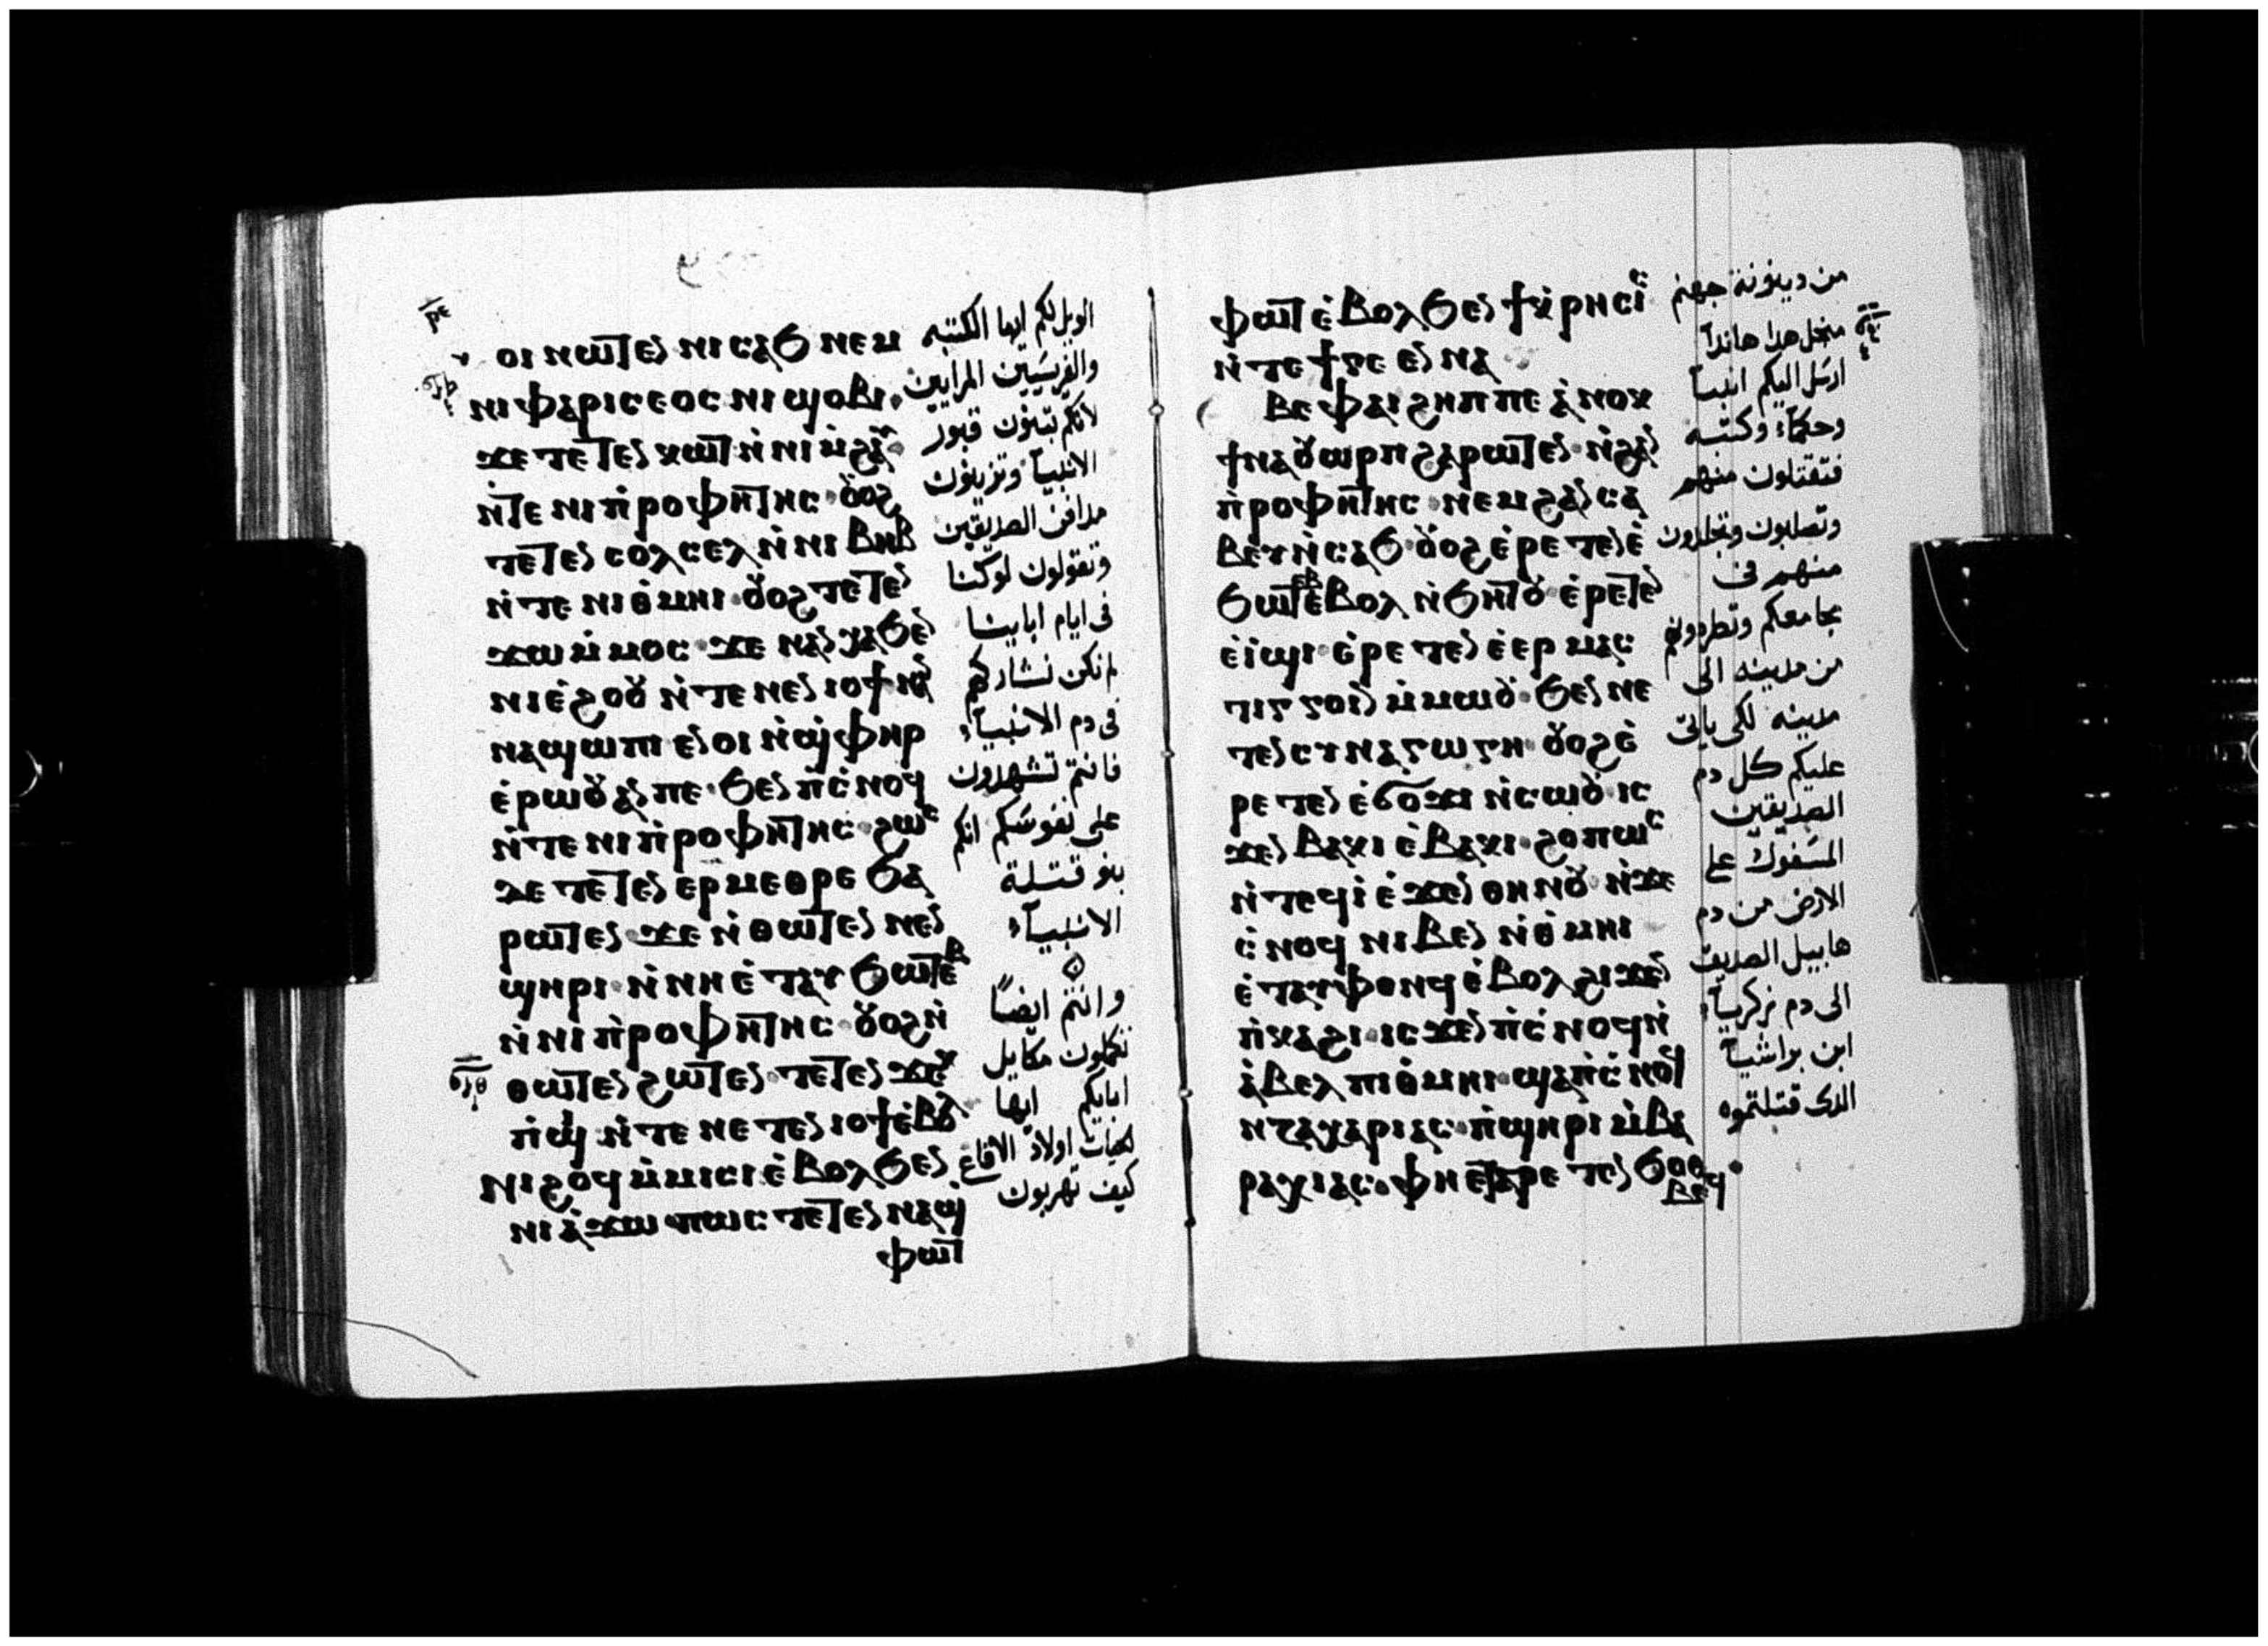 ⲟⲓ ⲛⲱⲧⲉⲛ ⲛⲓⲥⲁϧ ⲛⲉⲙ
ⲛⲓⲫⲁⲣⲓⲥⲉⲟⲥ ⲛⲓϣⲟⲃⲓ
ϫⲉ ⲧⲉⲧⲉⲛⲕⲱⲧ ⲛ̀ⲛⲓⲙ̀ϩⲁⲩ
ⲛ̀ⲧⲉ ⲛⲓⲡ̀ⲣⲟⲫⲏⲧⲏⲥ ⲟⲩⲟϩ
ⲧⲉⲧⲉⲛⲥⲟⲗⲥⲉⲗ ⲛ̀ⲛⲓⲃⲏⲃ
ⲛ̀ⲧⲉ ⲛⲓⲑ̀ⲙⲏⲓ ⲟⲩⲟϩ ⲧⲉⲧⲉⲛ
ϫⲱ ⲙ̀ⲙⲟⲥ ϫⲉ ⲛⲁⲛⲭⲁϧⲉⲛ
ⲛⲓⲉ̀ϩⲟⲟⲩ ⲛ̀ⲧⲉ ⲛⲉⲛⲓⲟϯ ⲛⲁⲛ
ⲛⲁϣⲱⲡⲓ ⲉⲛⲟⲓ ⲛ̀ϣ̀ⲫⲏⲣ
ⲉ̀ⲣⲱⲟⲩ ⲁⲛ ⲡⲉ ϧⲉⲛ ⲡ̀ⲥ̀ⲛⲟϥ
ⲛ̀ⲧⲉ ⲛⲓⲡ̀ⲣⲟⲫⲏⲧⲏⲥ ϩⲱⲥ
ⲇⲉ ⲧⲉⲧⲉⲛⲉⲣⲙⲉⲑⲣⲉ ϧⲁ
ⲣⲱⲧⲉⲛ ϫⲉ ⲛ̀ⲑⲱⲧⲉⲛ ⲛⲉⲛ
ϣⲏⲣⲓ ⲛ̀ⲛⲏ ⲉ̀ⲧⲁⲩϧⲱⲧⲉⲃ
ⲛ̀ⲛⲓⲡ̀ⲣⲟⲫⲏⲧⲏⲥ ⲟⲩⲟϩ ⲛ̀
ⲑⲱⲧⲉⲛ ϩⲱⲧⲉⲛ ⲧⲉⲧⲉⲛϫⲉⲕ
ⲡ̀ϣⲓ ⲛ̀ⲧⲉ ⲛⲉⲧⲉⲛⲓⲟϯ ⲉ̀ⲃⲟⲗ
ⲛⲓϩⲟϥ ⲙ̀ⲙⲓⲥⲓ ⲉ̀ⲃⲟⲗϧⲉⲛ
ⲛⲓⲁ̀ϫⲱ ⲡⲱⲥ ⲧⲉⲧⲉⲛⲛⲁϣ
ⲫⲱⲧ
الويل لكم ايها الكتبه
والفريسيين المرايين
لانكم تبنون قبور
الانبيآ وتزينون
مدافن الصديقين
وتقولون لو كنا
فى ايام اباينا
لم نكن نشاركهم
فى دم الانبيآء
فانتم تشهدون
على نفوسكم انكم
بنو قتلة
الانبيآء
وانتم ايضاً
تكملون مكايل
ابايكم ايها
الحيات اولاد الافاعى
كيف تهربون
ⲫⲱⲧ ⲉ̀ⲃⲟⲗϧⲉⲛ ϯⲕ̀ⲣⲏⲥⲓⲥ
ⲛ̀ⲧⲉ ϯⲅⲉⲉⲛⲛⲁ
ⲃⲉ ⲫⲁⲓ ϩⲏⲡⲡⲉ ⲁ̀ⲛⲟⲕ
ϯⲛⲁⲟⲩⲱⲣⲡ ϩⲁⲣⲱⲧⲉⲛ ⲛ̀ϩⲁⲛ
ⲡ̀ⲣⲟⲫⲏⲧⲏⲥ ⲛⲉⲙ ϩⲁⲛⲥⲁ
ⲃⲉⲩ ⲛ̀ⲥⲁϧ ⲟⲩⲟϩ ⲉ̀ⲣⲉⲧⲉⲛⲉ̀
ϧⲱⲧⲉⲃ ⲉ̀ⲃⲟⲗ ⲛ̀ϧⲏⲧⲟⲩ ⲉ̀ⲣⲉⲧⲉⲛ
ⲉ̀ⲓ̀ϣⲓ ⲉ̀ⲣⲉⲧⲉⲛⲉ̀ⲉⲣⲙⲁⲥ
ⲧⲓⲅⲅⲟⲓⲛ ⲙ̀ⲙⲱⲟⲩ ϧⲉⲛ ⲛⲉ
ⲧⲉⲛⲥⲩⲛⲁⲅⲱⲅⲏ ⲟⲩⲟϩ ⲉ̀
ⲣⲉⲧⲉⲛⲉ̀ϭⲟϫⲓ ⲛ̀ⲥⲱⲟⲩ ⲓⲥ
ϫⲉⲛ ⲃⲁⲕⲓ ⲉ̀ⲃⲁⲕⲓ ϩⲟⲡⲱⲥ
ⲛ̀ⲧⲉϥⲓ̀ ⲉ̀ϫⲉⲛ ⲑⲏⲛⲟⲩ ⲛ̀ϫⲉ
ⲥ̀ⲛⲟϥ ⲛⲓⲃⲉⲛ ⲛ̀ⲑ̀ⲙⲏⲓ
ⲉ̀ⲧⲁⲩⲫⲟⲛϥ ⲉ̀ⲃⲟⲗ ϩⲓϫⲉⲛ
ⲡ̀ⲕⲁϩⲓ ⲓⲥϫⲉⲛ ⲡ̀ⲥ̀ⲛⲟϥ ⲛ̀
ⲁ̀ⲃⲉⲗ ⲡⲓⲑ̀ⲙⲏⲓ ϣⲁ ⲡ̀ⲥ̀ⲛⲟϥ
ⲛ̀ⲍⲁⲭⲁⲣⲓⲁⲥ ⲡ̀ϣⲏⲣⲓ ⲙ̀ⲃⲁ
ⲣⲁⲭⲓⲁⲥ ⲫⲏ ⲉ̀ⲧⲁⲣⲉⲧⲉⲛϧⲟⲑ
ⲃⲉϥ
من دينونة جهنم
من اجل هدا هاندا
ارسل اليكم انبيآ
وحكمآء وكتبه
فتقتلون منهم
وتصلبون وتجلدون
منهم فى
مجامعكم وتطردونهم
من مدينه الى
مدينه لكى ياتى
عليكم كل دم
الصديقين
المسفوك على
الارض من دم
هابيل الصديق
الى دم زكريآء
ابن براشيآ
الدى قتلتموه